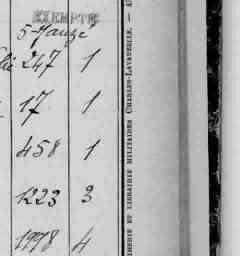 EXEMPTÉ
247 1
17 1
458 1
1223 3
1998 4
IMERIE ET LIBRAIRIE MILITAIRES CHARLES-LAVAUZELLE. —